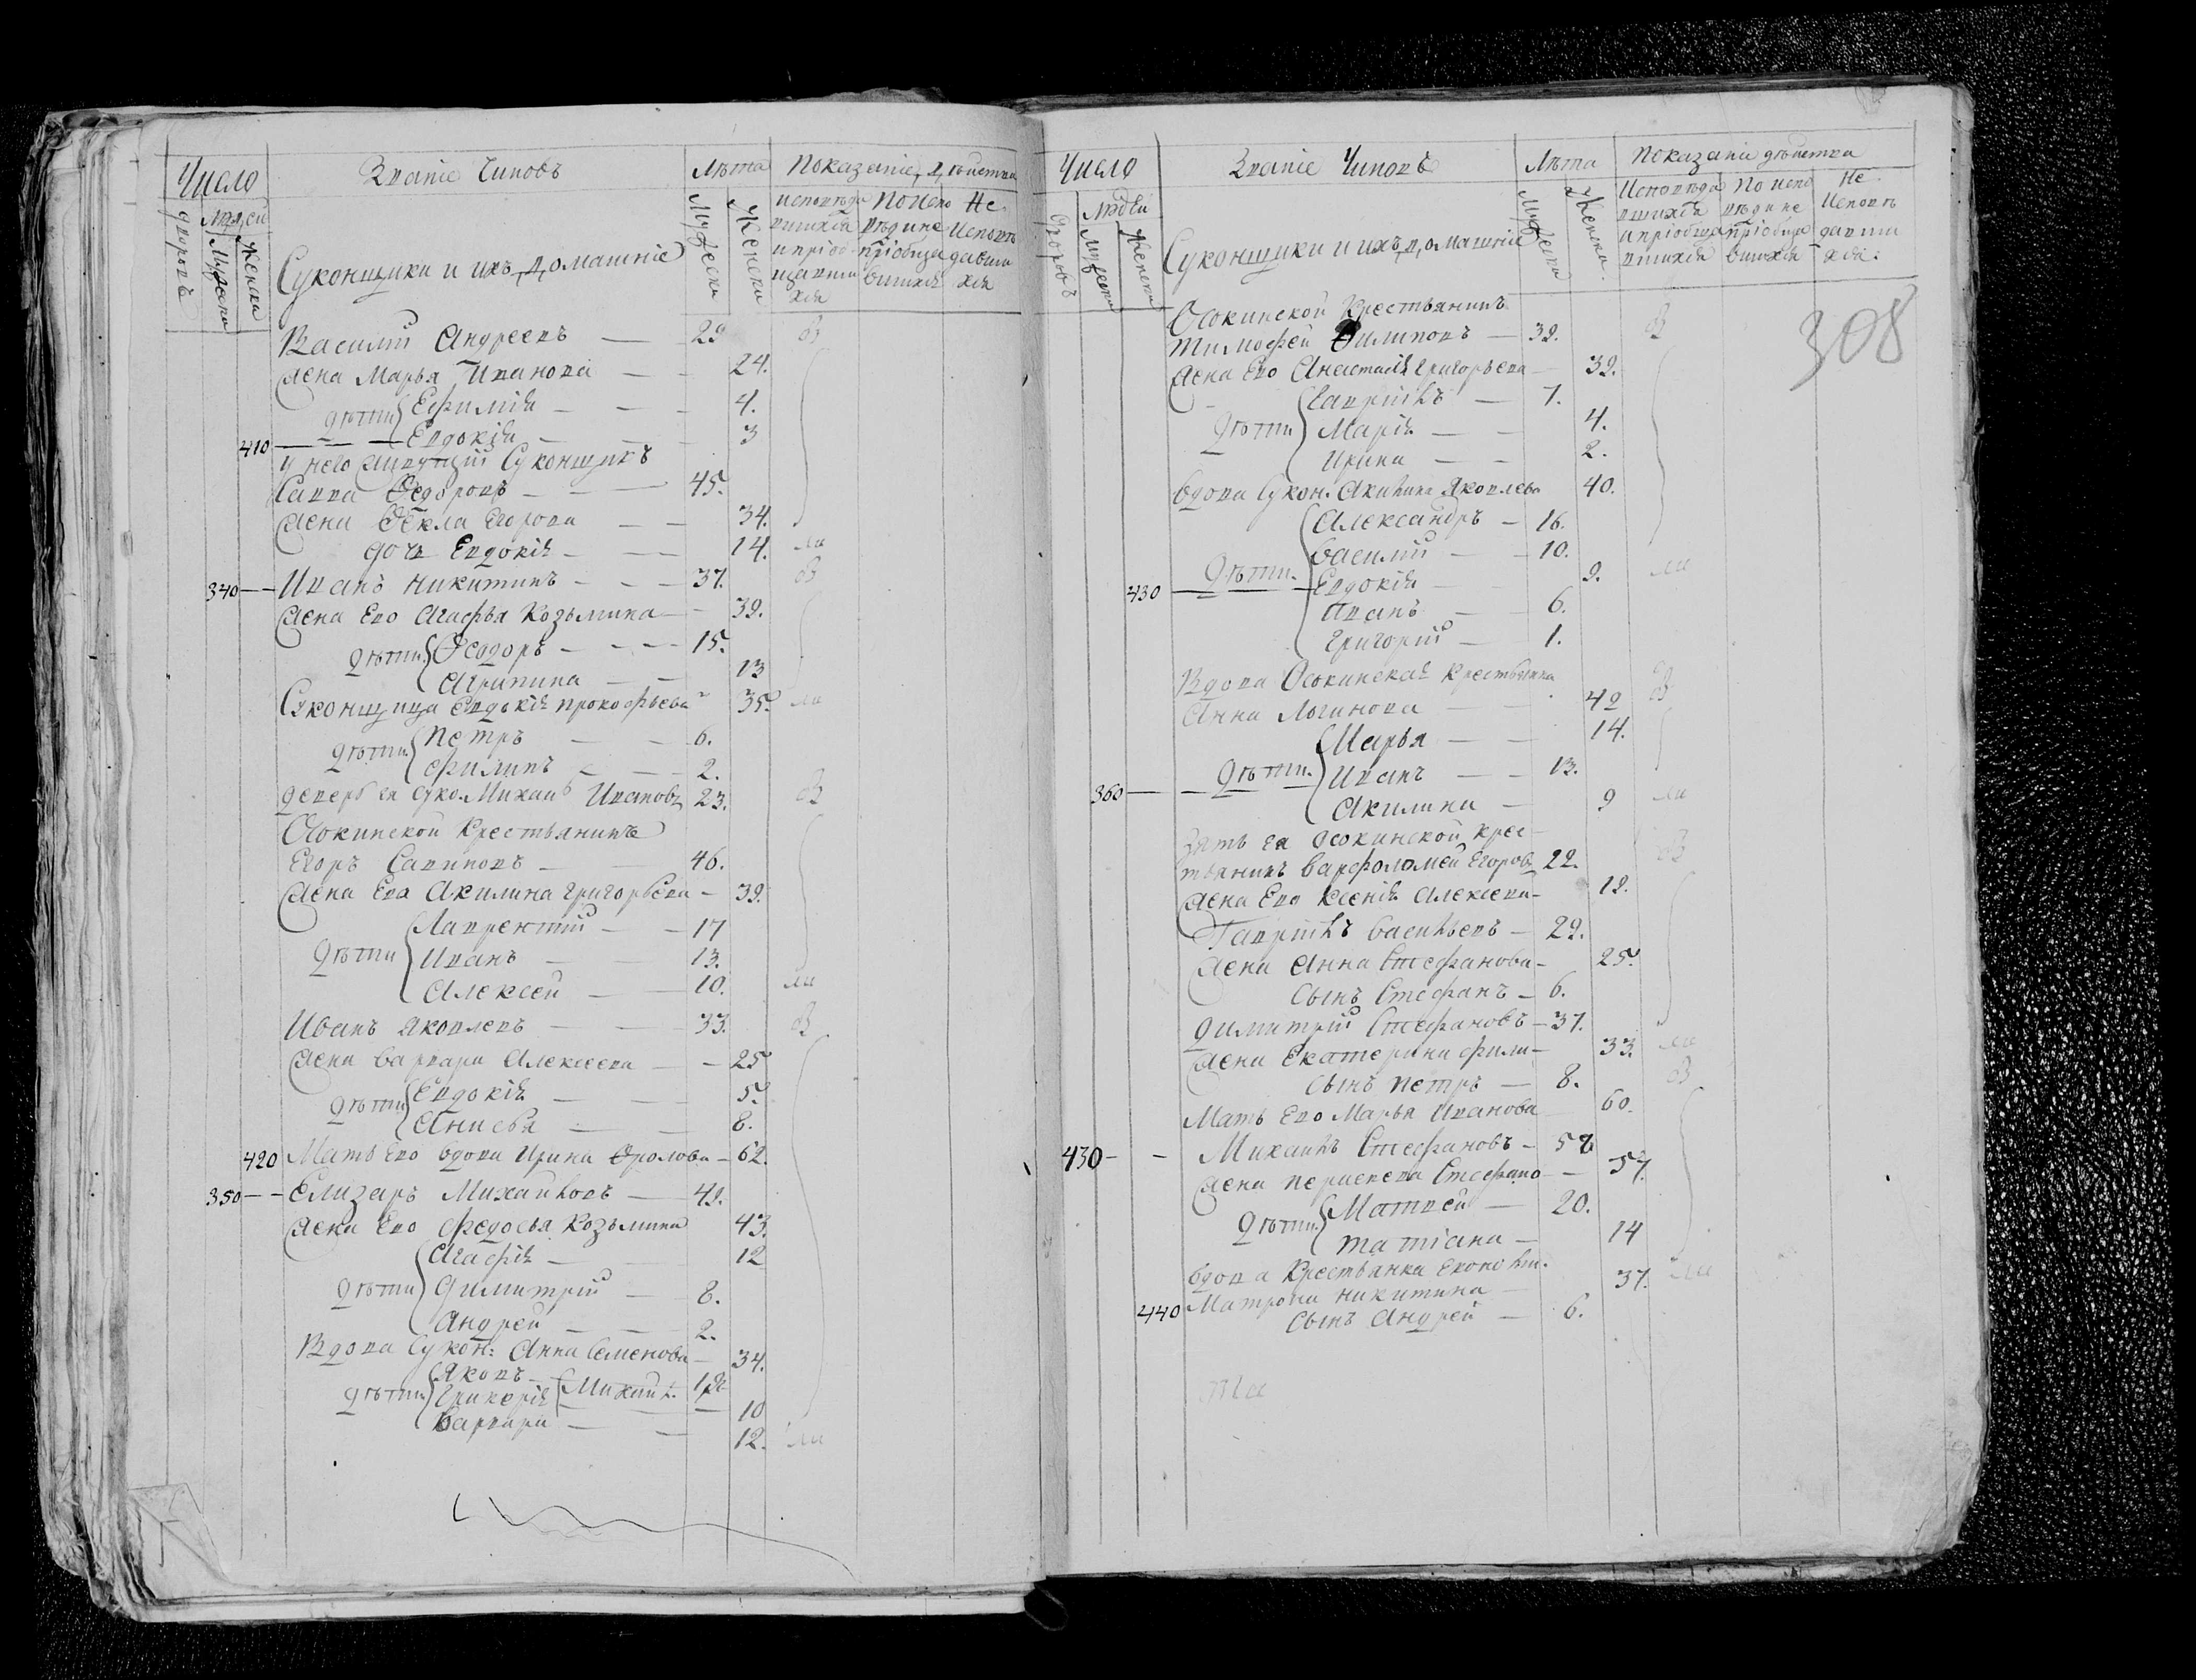 Число
Званіе Чиновъ
Лѣта
Показаніе дѣйства
дворовъ
Людей
Мужеска
Женска
Суконщики и ихъ домашніе
Мужеска
Женска
исповѣдавшихся и пріобщавшихся
По исповѣди не пріобщавшихся
Не исповѣдавшихся
Василій Андреевъ — 29
Жена Марья Иванова — 24.
дѣти Ефимія — 4.
410 Евдокія — 3
у него живущій Суконщикъ
Савва Ѳедоровъ — 45.
Жена Ѳекла Егорова — 34.
дочь Евдокія — 14.
340 — Иванъ Никитинъ — 37.
Жена Его Агафья Козьмина — 39.
дѣти Ѳеодоръ — 15.
Агрипина — 13
Суконщица Евдокія Прокофьева 35.
дѣти Петръ — 6.
Филипъ — 2.
деверь ея суко. Михаилъ Ивановъ 23.
Осокинской Крестьянинъ
Егоръ Савиновъ — 46.
Жена Его Акилина Григорьева — 39.
Лаврентій — 17
дѣти Иванъ — 13.
Алексей — 10.
Иванъ Яковлевъ — 33.
Жена Варвара Алексеева — 25
дѣти Евдокія — 5.
Анисья — 8.
420 Мать Его вдова Ирина Фролова — 62.
350 — Елизаръ Михайловъ — 49.
Жена Его Федосья Козьмина 43.
Агафія — 12
дѣти Димитрій — 8.
Андрей — 2.
Вдова Сукон: Анна Семенова — 34.
Яковъ
дѣти Гликерія Михаилъ — 10
Варвара — 12.
Число
Званіе Чиновъ
Лѣта
Показаніе дѣйства
дворовъ
Людей
Мужеска
Женска
Суконщики и ихъ домашніе
Мужеска
Женска
Исповѣдавшихся и пріобщавшихся
По исповѣди не пріобщавшихся
Не Исповѣдавшихся
308
Осокинской Крестьянинъ
Тимофей Филиповъ — 39.
Жена Его Анастасія Григорьева — 39.
Гавріилъ — 7.
дѣти Марія — 4.
Ирина — 2.
вдова Сукон. Акилина Яковлева 40.
Александръ — 16.
Василій — 10.
430 дѣти Евдокія — 9.
Иванъ — 6.
Григорій — 1.
Вдова Осокинская Крестьянка
Анна Логинова — 42
Марья — 14.
360 — дѣти Иванъ — 13.
Акилина — 9
зять ея Осокинской крес-
тьянинъ Варфоломей Егоровъ 22.
Жена Его Ксенія Алексеева — 19.
Гавріилъ Васильевъ — 29.
Жена Анна Стефанова — 25.
сынъ Стефанъ — 6.
Димитрій Стефановъ — 37.
Жена Екатерина Фили — 33.
сынъ Петръ — 8.
Мать Его Марья Иванова 60.
430 — Михаилъ Стефановъ — 58
Жена Стефано — 57.
дѣти Матвей — 20.
Татіана — 14
вдова Крестьянка
Матрона Никитина — 37.
440 сынъ Андрей — 6.